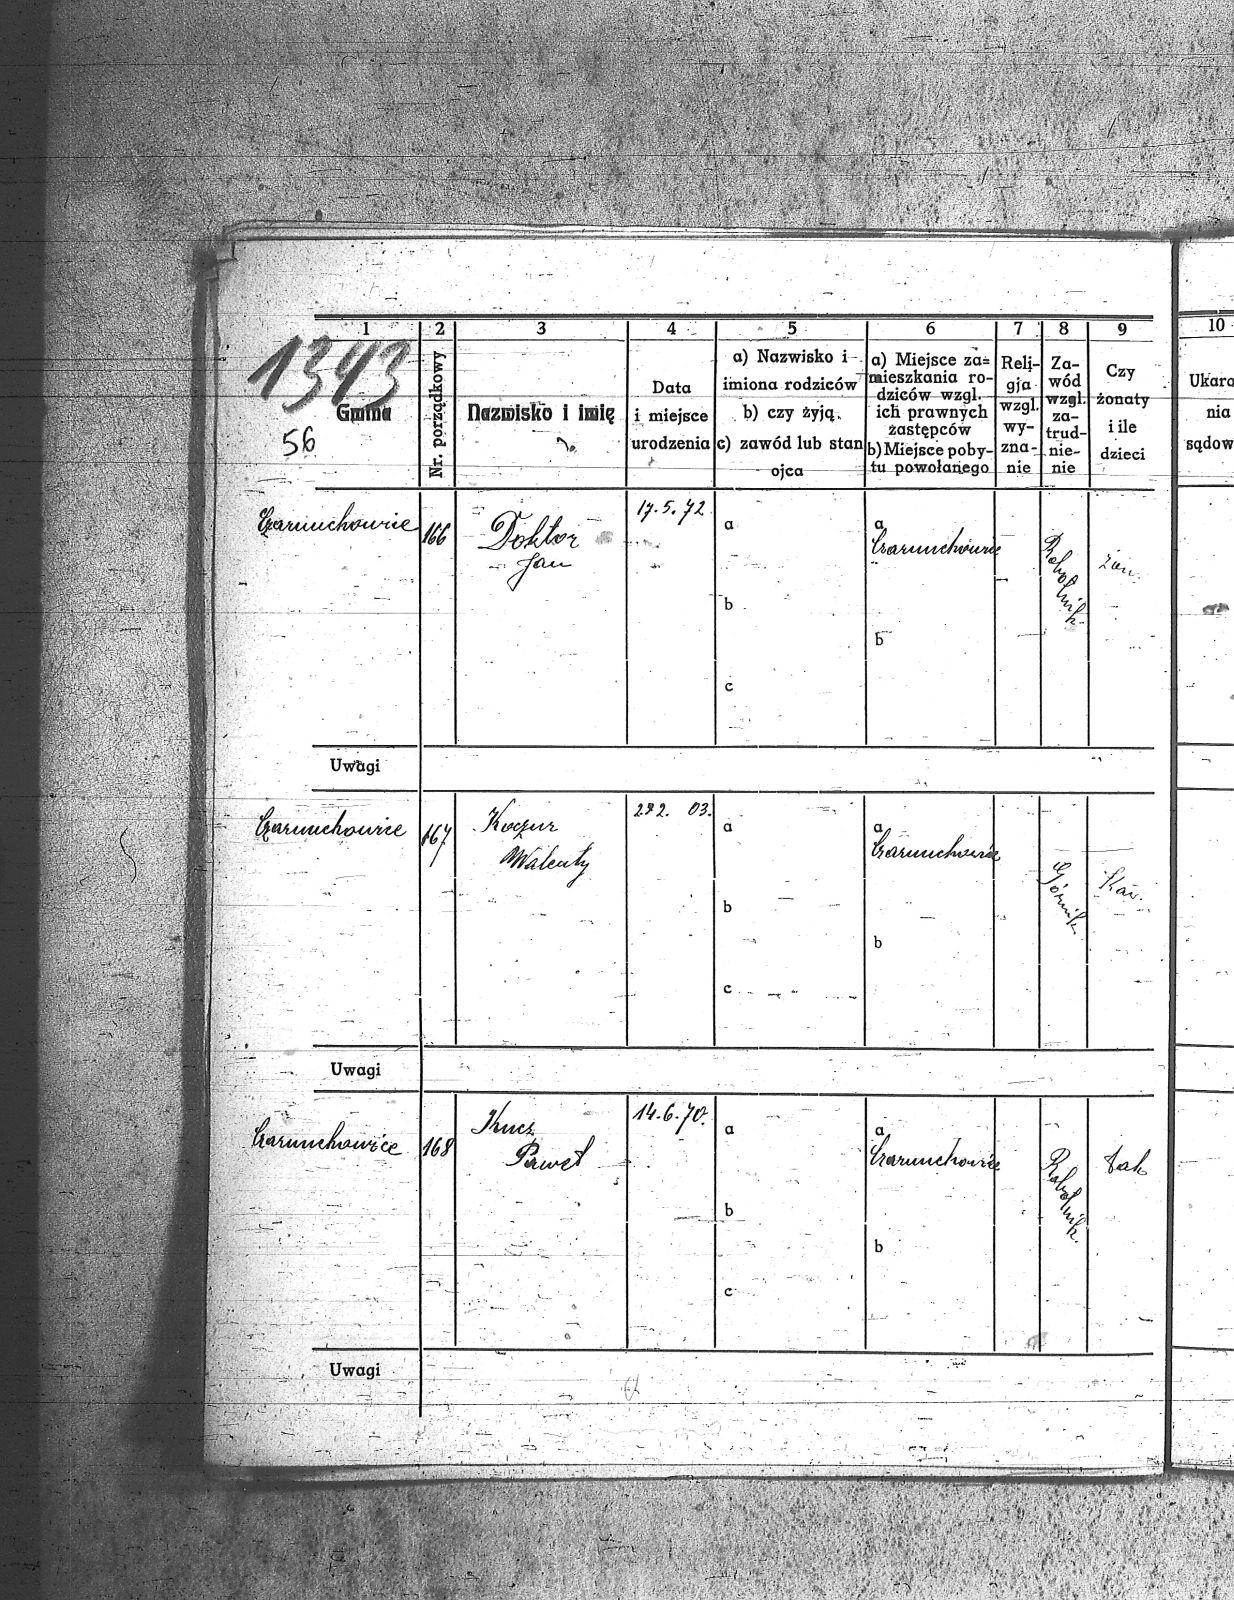 1 2 3 4 5 6 7 8 9 10
1343
Gmina
56
Nr. porządkowy
Nazwisko i imię
Data
i miejsce
urodzenia
a) Nazwisko i
imiona rodziców
b) czy żyją
c) zawód lub stan
ojca
a) Miejsce za=
mieszkania ro-
dziców wzgl.
ich prawnych
zastępców
b) Miejsce poby-
tu powołanego
Reli-
gja
wzgl.
wy-
zna-
nie
Za-
wód
wzgl.
za-
trud-
nie-
nie
Czy
żonaty
i ile
dzieci
Ukara
nia
sądow
Czarnuchowice
166
Doktor
Jan
17.5.72
a
b
c
a
Czarnuchowice
b
Robotnik
żon.
Uwagi
Czarnuchowice
167
Koczur
Walenty
03.
a
b
c
a
Czarnuchowice
b
Górnik
Kaw.
Uwagi
Czarnuchowice
168
Kucz
Paweł
14.6.70.
a
b
c
a
Czarnuchowice
b
Robotnik
tak
Uwagi